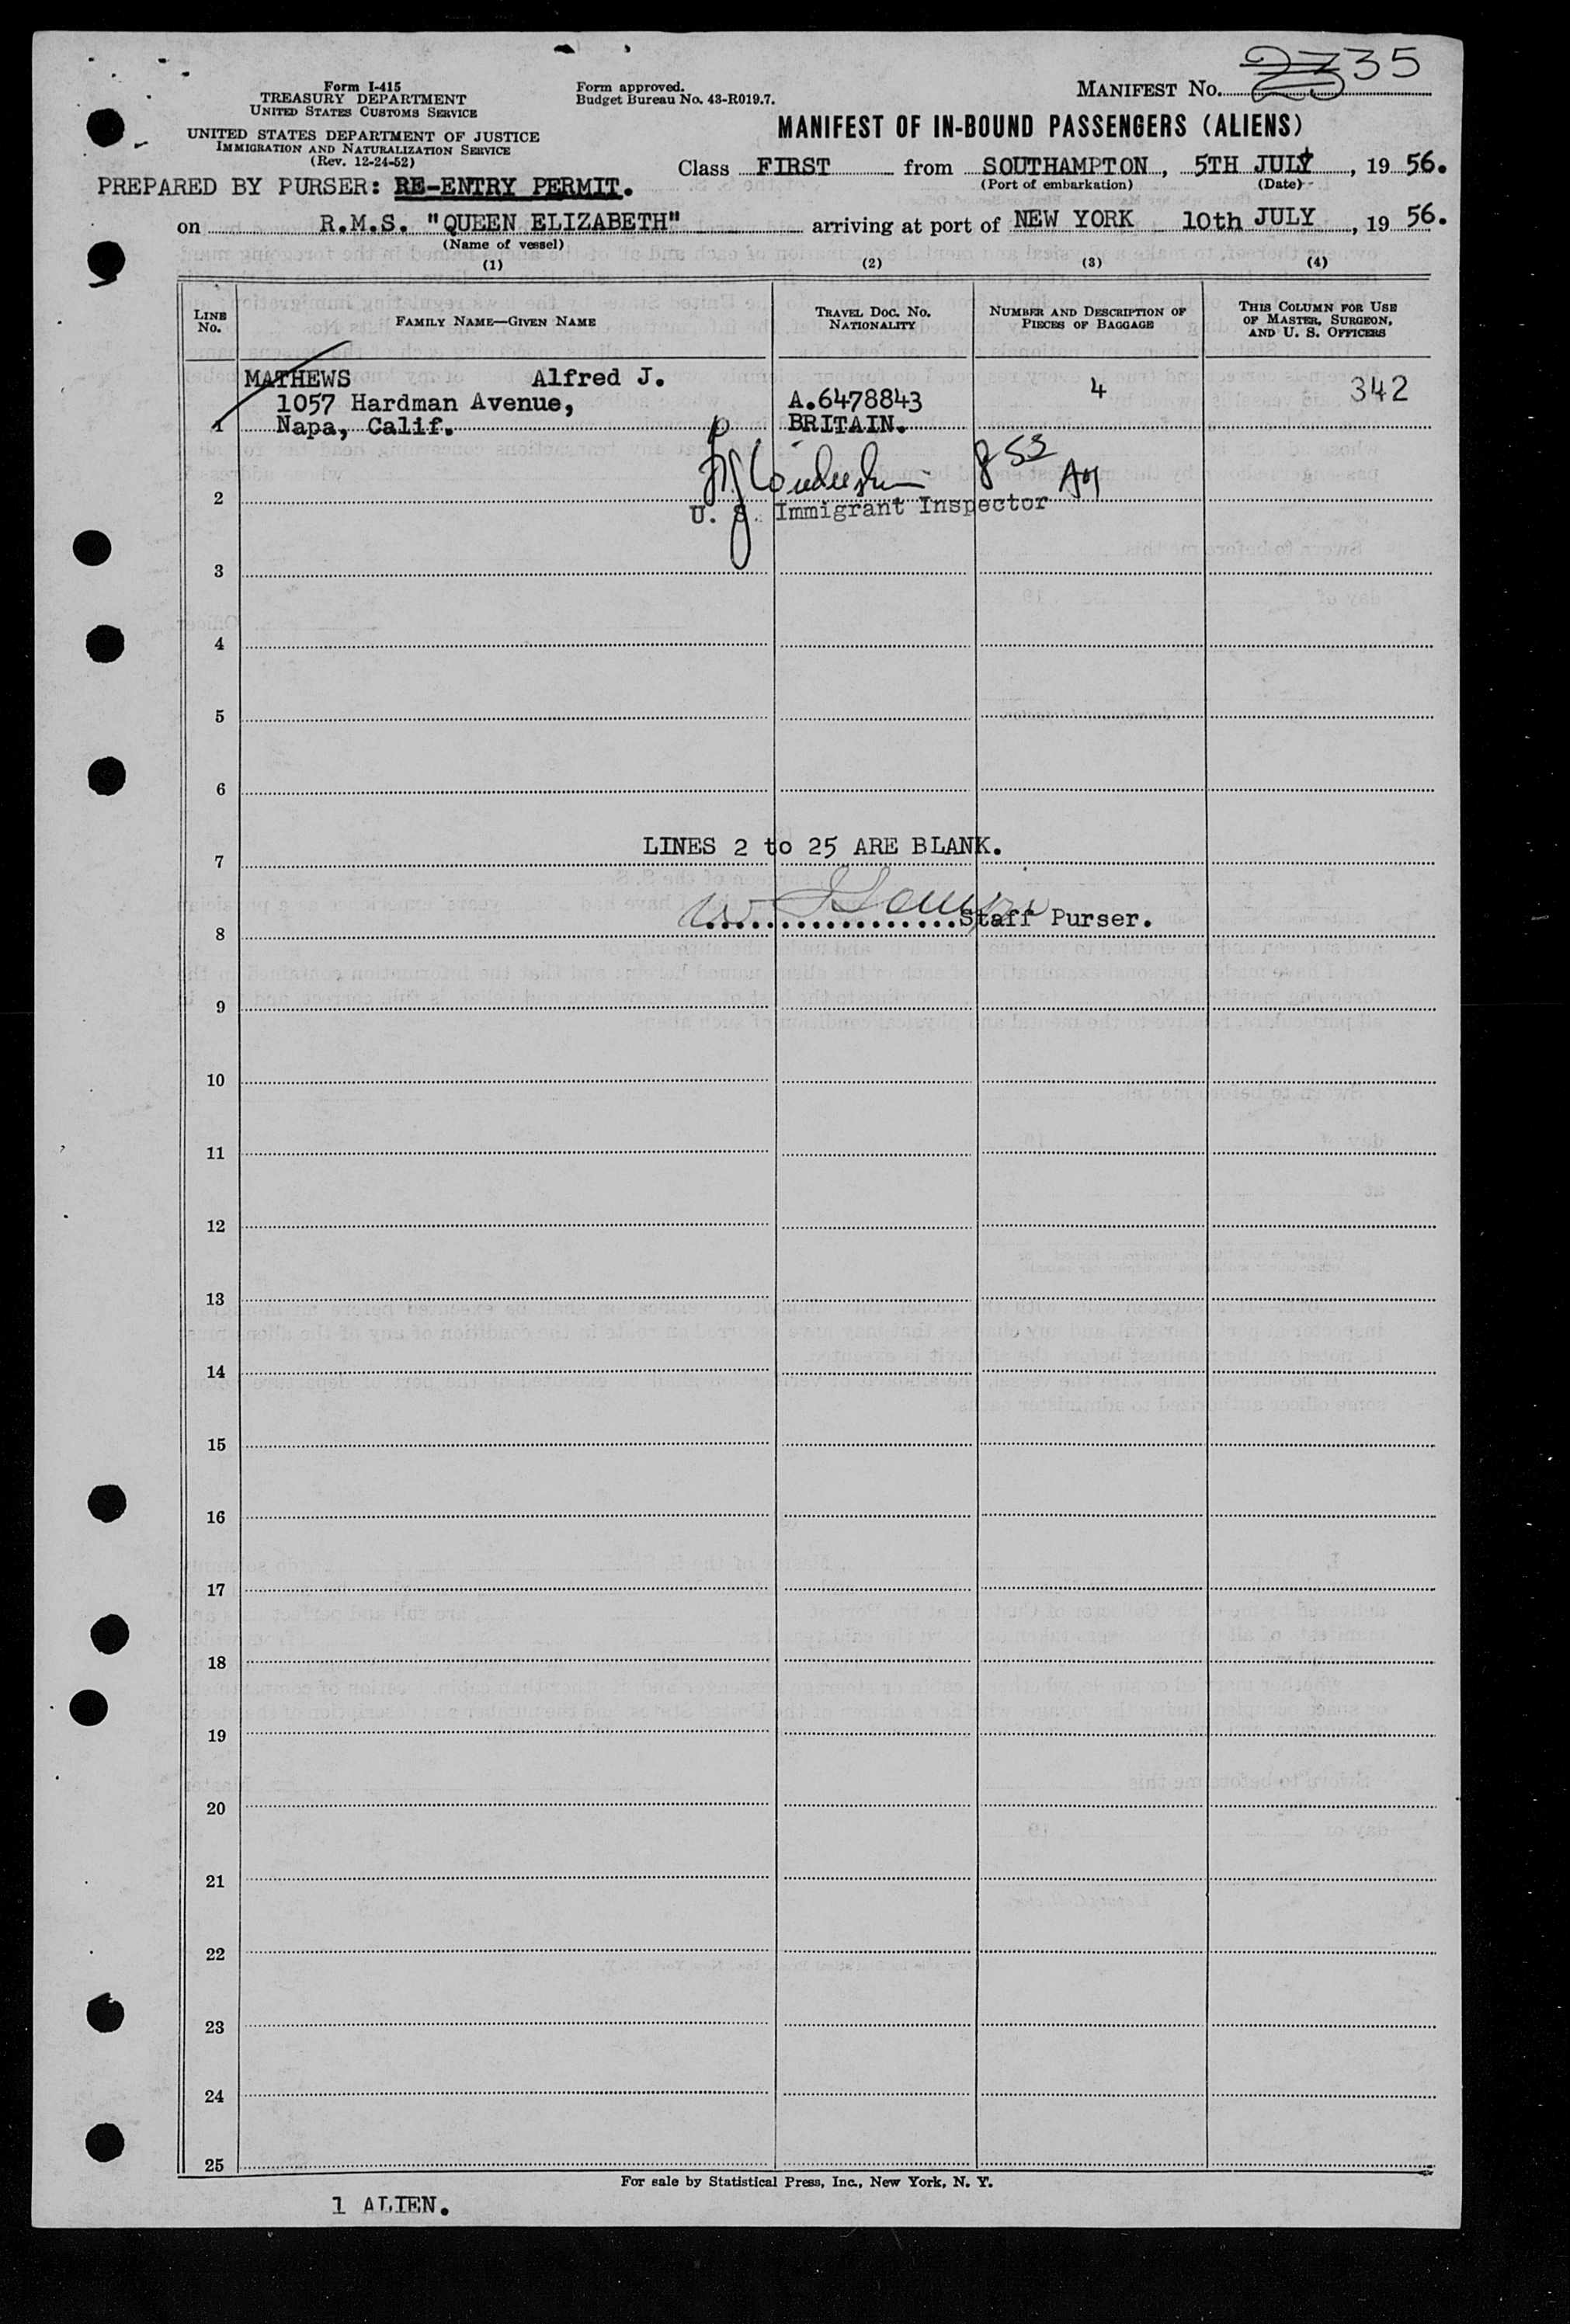 35
Form I-415
TREASURY DEPARTMENT
UNITED STATES CUSTOMS SERVICE
UNITED STATES DEPARTMENT OF JUSTICE
IMMIGRATION AND NATURALIZATION SERVICE
(Rev. 12-24-52)
Form approved.
Budget Bureau No. 43-R019.7.
MANIFEST NO.
MANIFEST OF IN-BOUND PASSENGERS (ALIENS)
Class FIRST from SOUTHAMPTON, 5TH JULY, 19 56.
(Port of embarkation) (Date)
PREPARED BY PURSER: RE-ENTRY PERMIT.
on R.M.S. "QUEEN ELIZABETH" arriving at port of NEW YORK 10th JULY, 19 56.
(Name of vessel)
(1) (2) (3) (4)
LINE NO.
FAMILY NAME—GIVEN NAME
TRAVEL DOC. NO. NATIONALITY
NUMBER AND DESCRIPTION OF PIECES OF BAGGAGE
THIS COLUMN FOR USE OF MASTER, SURGEON, AND U. S. OFFICERS
MATHEWS Alfred J. 4 342
1057 Hardman Avenue, A.6478843
1 Napa, Calif. BRITAIN.
2
U. S. Immigrant Inspector
3
4
5
6
LINES 2 to 25 ARE BLANK.
7
Staff Purser.
8
9
10
11
12
13
14
15
16
17
18
19
20
21
22
23
24
25
For sale by Statistical Press, Inc., New York, N. Y.
1 ALIEN.